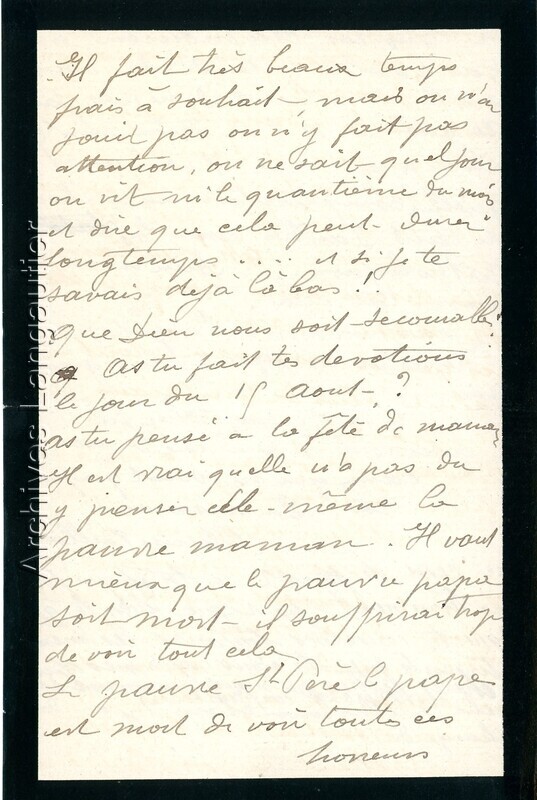 Il fait très beaux temps
frais à souhait - mais on n'en
jouit pas on n'y fait pas
attention, on ne sait quel jour
on vit ni le quantième du mois
et dire que cela peut durer
longtemps .... et si je te
savais déjà là bas !!
Que Dieu nous soit secourable !
As tu fait tes devotions
le jour du 15 Aout - ?
as tu pensé à la fête de maman
Il est vrai qu'elle n'a pas du
y penser elle-même la
pauvre maman. Il vaut
mieux que le pauvre papa
soit mort - il souffrirai trop
de voir tout cela
Le pauvre St Père le pape
est mort de voir toutes ces
horreurs
Archives Langautier